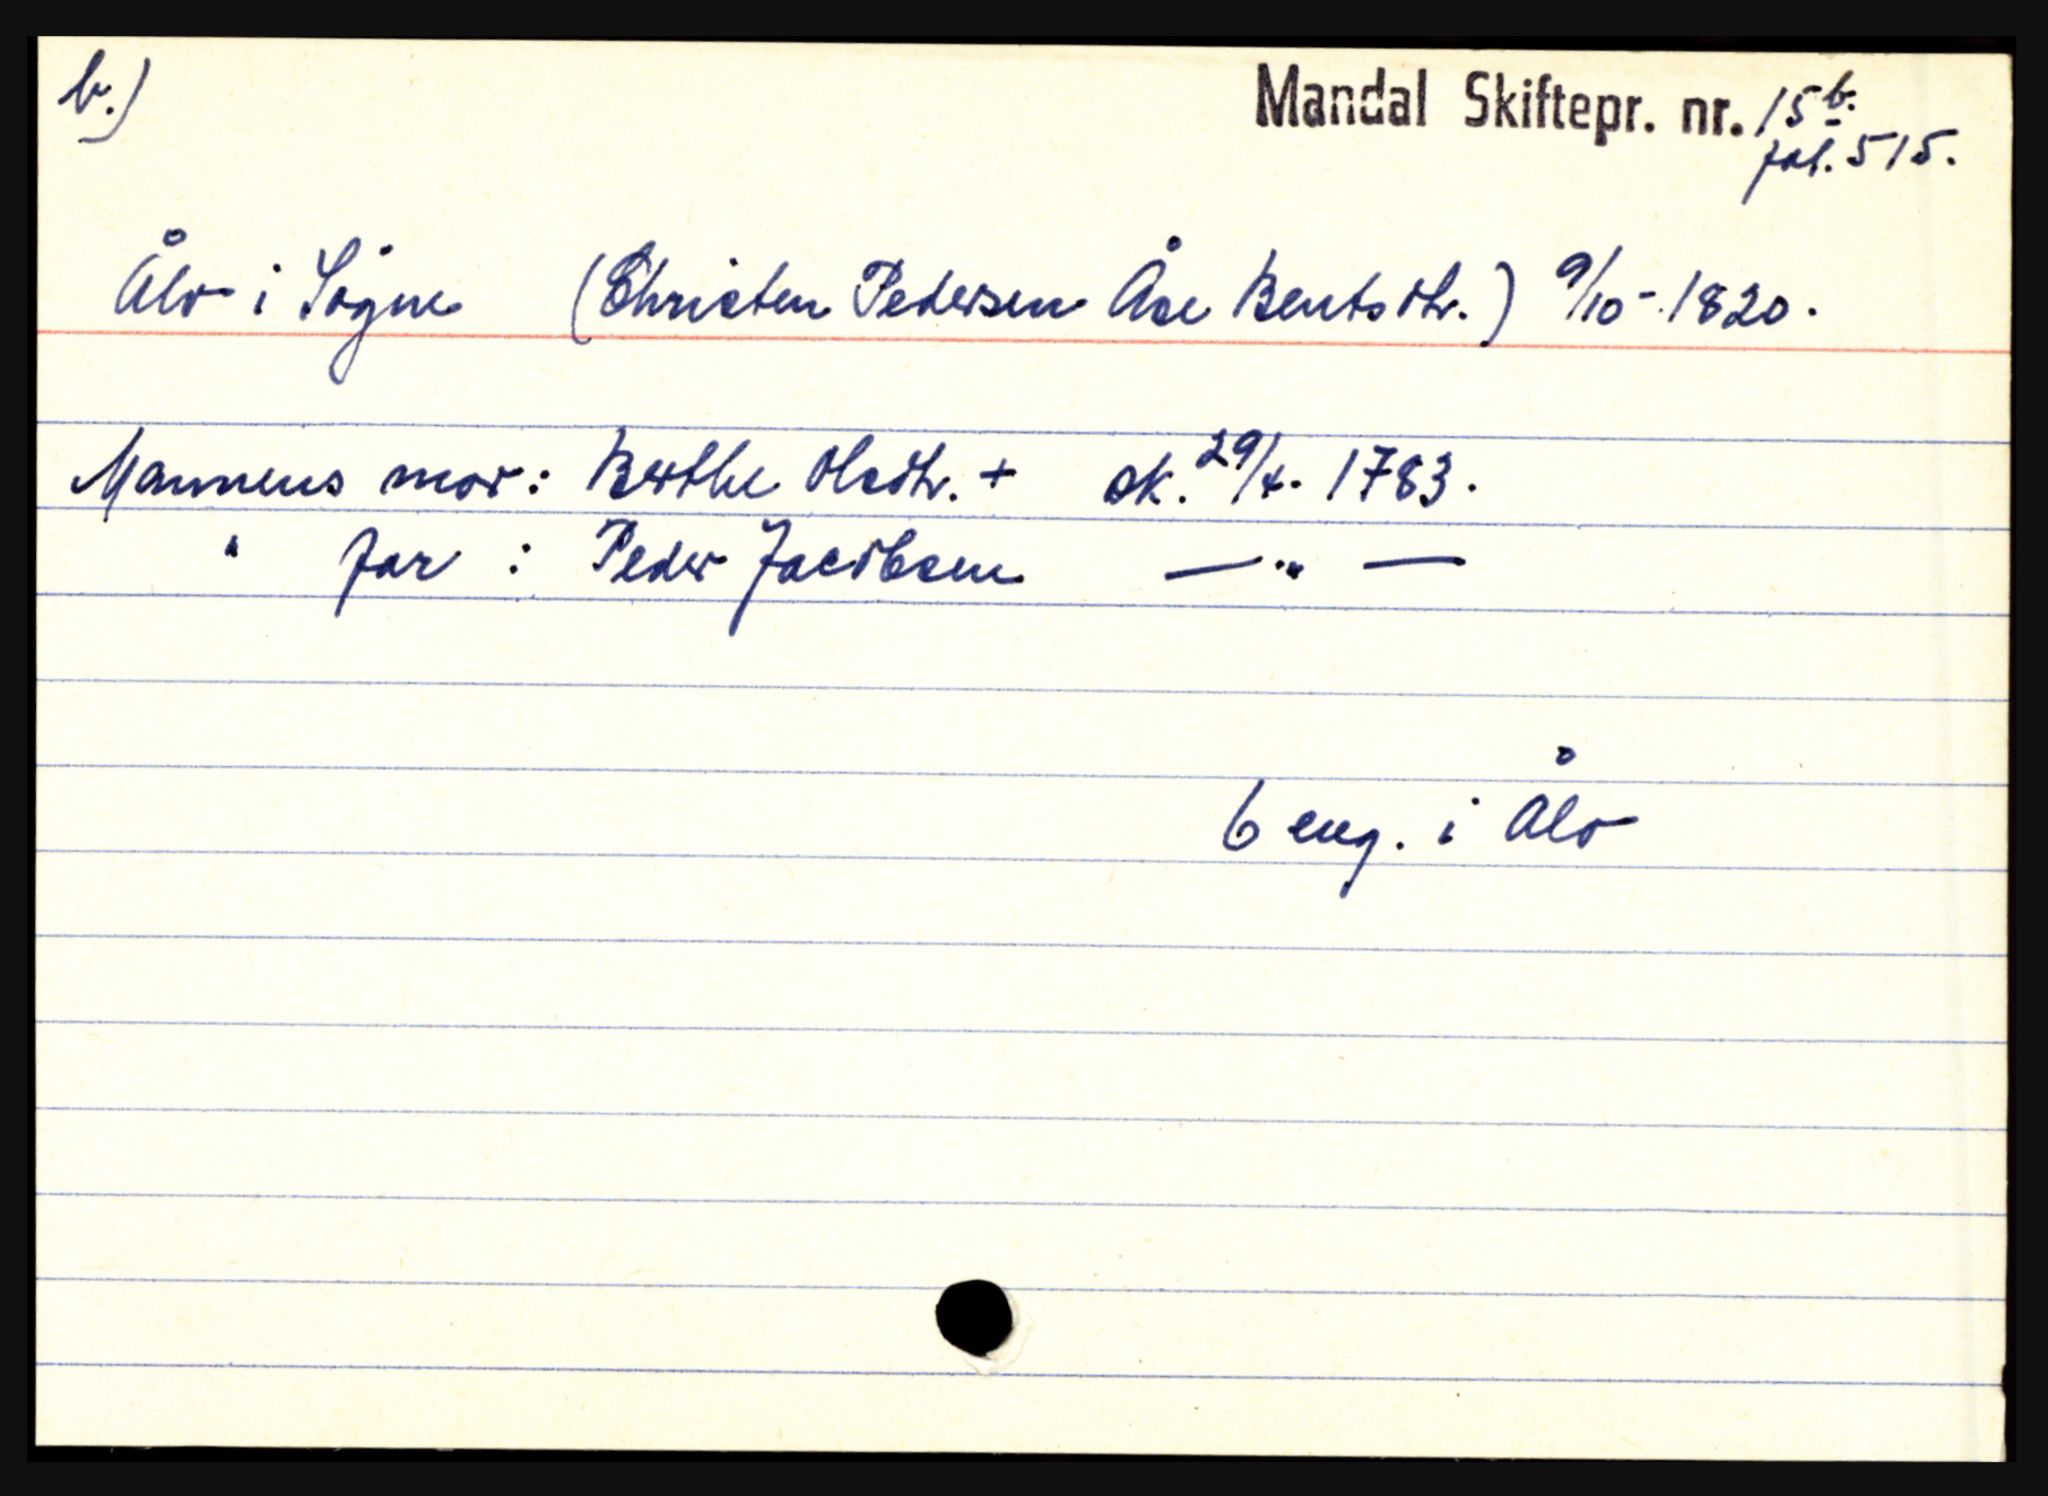 b.)
Mandal Skiftepr. nr. 15b.
fol. 515.
Ålo i Søgne (Christen Pedersen Åse Bentsdtr.) 9/10-1820.
Mannens mor: Berthe Olsdtr. + sk. 29/4. 1783.
" far : Peder Jacobsen — " —
6 eng. i Ålo